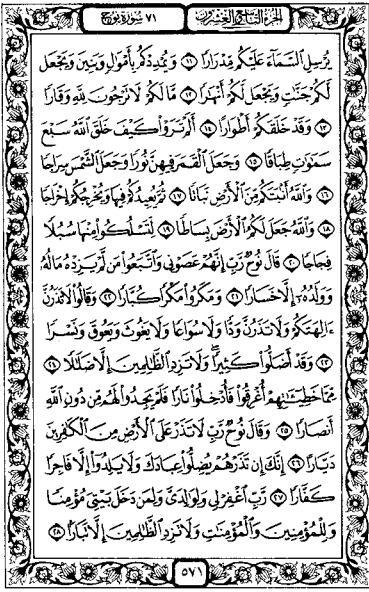 الجزء التاسع والعشرون
٧١ سورة نوح
يُرْسِلِ السَّمَاءَ عَلَيْكُم مِّدْرَارًا ⑪ وَيُمْدِدْكُم بِأَمْوَالٍ وَبَنِينَ وَيَجْعَل
لَّكُمْ جَنَّاتٍ وَيَجْعَل لَّكُمْ أَنْهَارًا ⑫ مَّا لَكُمْ لَا تَرْجُونَ لِلَّهِ وَقَارًا
⑬ وَقَدْ خَلَقَكُمْ أَطْوَارًا ⑭ أَلَمْ تَرَوْا كَيْفَ خَلَقَ اللَّهُ سَبْعَ
سَمَاوَاتٍ طِبَاقًا ⑮ وَجَعَلَ الْقَمَرَ فِيهِنَّ نُورًا وَجَعَلَ الشَّمْسَ سِرَاجًا
⑯ وَاللَّهُ أَنبَتَكُم مِّنَ الْأَرْضِ نَبَاتًا ⑰ ثُمَّ يُعِيدُكُمْ فِيهَا وَيُخْرِجُكُمْ إِخْرَاجًا
⑱ وَاللَّهُ جَعَلَ لَكُمُ الْأَرْضَ بِسَاطًا ⑲ لِّتَسْلُكُوا مِنْهَا سُبُلًا
فِجَاجًا ⑳ قَالَ نُوحٌ رَّبِّ إِنَّهُمْ عَصَوْنِي وَاتَّبَعُوا مَن لَّمْ يَزِدْهُ مَالُهُ
وَوَلَدُهُ إِلَّا خَسَارًا ㉑ وَمَكَرُوا مَكْرًا كُبَّارًا ㉒ وَقَالُوا لَا تَذَرُنَّ
آلِهَتَكُمْ وَلَا تَذَرُنَّ وَدًّا وَلَا سُوَاعًا وَلَا يَغُوثَ وَيَعُوقَ وَنَسْرًا
㉓ وَقَدْ أَضَلُّوا كَثِيرًا وَلَا تَزِدِ الظَّالِمِينَ إِلَّا ضَلَالًا ㉔
مِّمَّا خَطِيئَاتِهِمْ أُغْرِقُوا فَأُدْخِلُوا نَارًا فَلَمْ يَجِدُوا لَهُم مِّن دُونِ اللَّهِ
أَنصَارًا ㉕ وَقَالَ نُوحٌ رَّبِّ لَا تَذَرْ عَلَى الْأَرْضِ مِنَ الْكَافِرِينَ
دَيَّارًا ㉖ إِنَّكَ إِن تَذَرْهُمْ يُضِلُّوا عِبَادَكَ وَلَا يَلِدُوا إِلَّا فَاجِرًا
كَفَّارًا ㉗ رَّبِّ اغْفِرْ لِي وَلِوَالِدَيَّ وَلِمَن دَخَلَ بَيْتِيَ مُؤْمِنًا
وَلِلْمُؤْمِنِينَ وَالْمُؤْمِنَاتِ وَلَا تَزِدِ الظَّالِمِينَ إِلَّا تَبَارًا ㉘
٥٧١